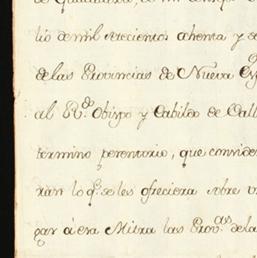 de Guadalaxara, de
lio de mil setecientos ochenta y se
de las Provincias de Nueva
al Rdo Obispo y Cabildo de Vall
termino perentorio, que conside
ran lo qe se les ofreciera sobre
gar á esa Mitra las Provas de la